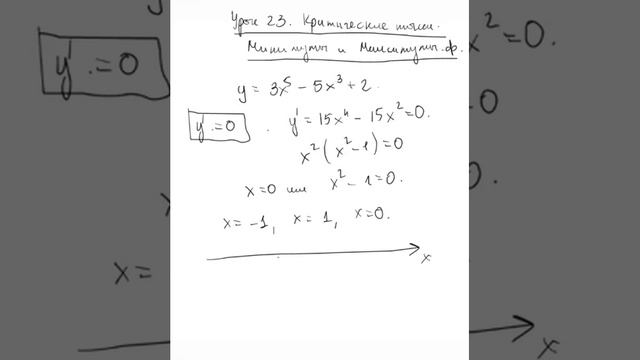 Урок 23. Критические точки.
Минимумы и Максимумы ф.
y = 3x⁵ − 5x³ + 2.
y' = 0 . y' = 15x⁴ − 15x² = 0.
x² (x² − 1) = 0
x = 0 или x² − 1 = 0.
x = −1, x = 1, x = 0.
x